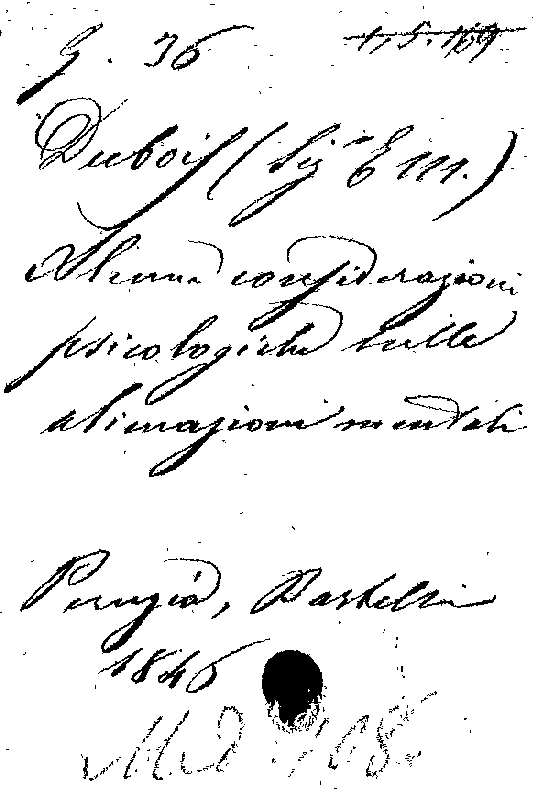 G. 36 1, 5. 169
Dubois (Sig.r E M.)
Alcune considerazioni
psicologiche sulle
alienazioni mentali
Perugia, Bartelli
1846
Md 908.